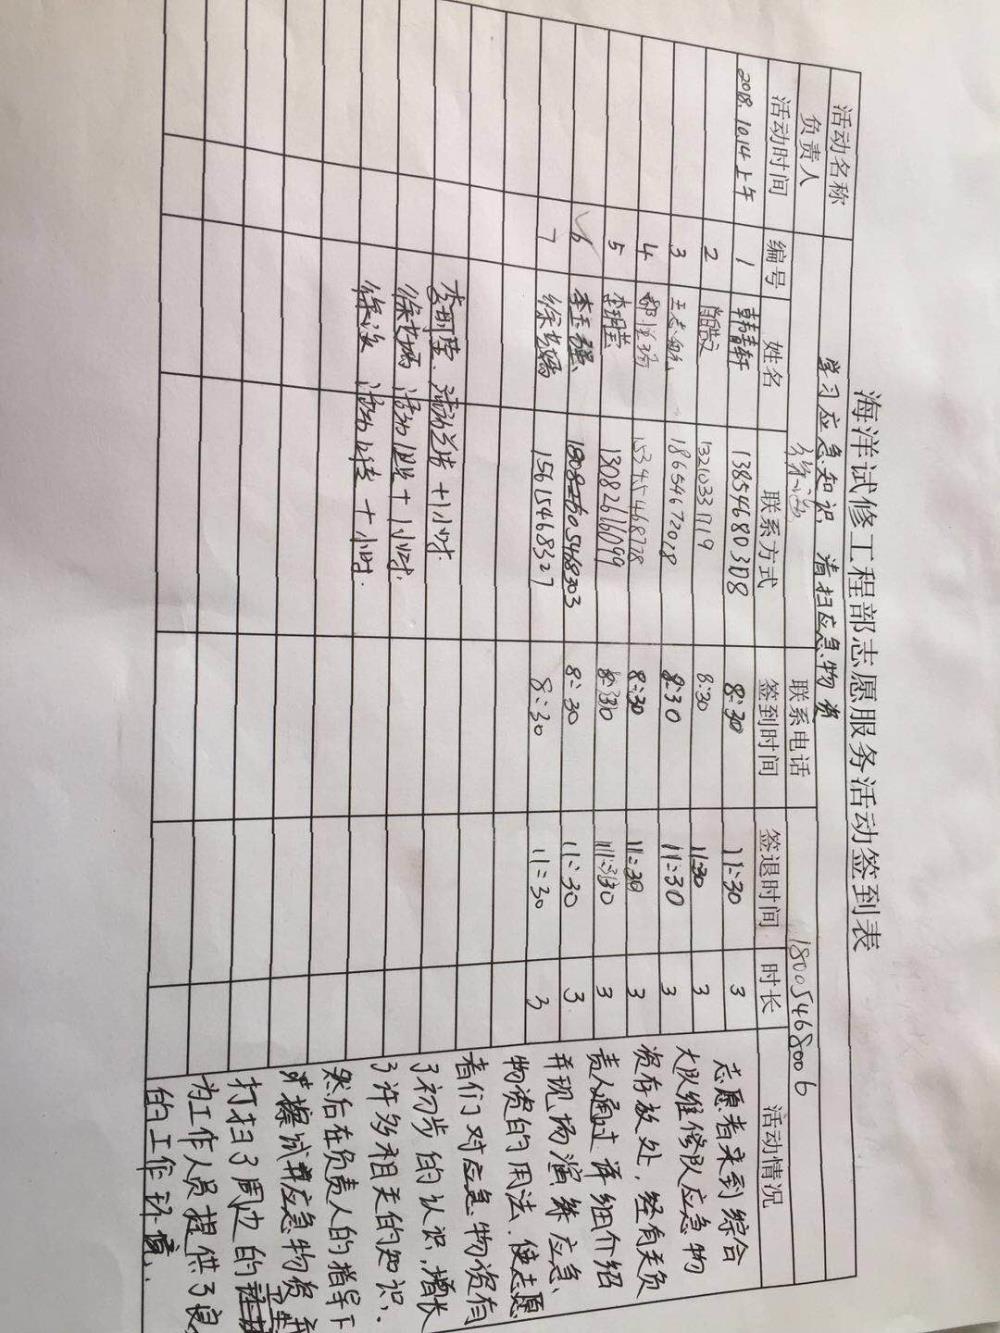 海洋试修工程部志愿服务活动签到表
活动名称 学习应急知识 清扫应急物资
负责人 联系电话 18005468006
活动时间 编号 姓名 联系方式 签到时间 签退时间 时长 活动情况
2018.10.14上午 1 韩靖轩 13854680308 8:30 11:30 3
2 13210331719 8:30 11:30 3
3 王志 18654672018 8:30 11:30 3
4 15345468728 8:30 11:30 3
5 李玥莹 13082616099 8:30 11:30 3
6 李玉强 8:30 11:30 3
7 徐书嫱 15615468327 8:30 11:30 3
李玥莹、活动总结 +1小时
徐书嫱 活动照片 +1小时
徐 活动 +小时.
志愿者来到综合
大队维修队应急物
资存放处,经有关负
责人通过详细介绍
并现场演练应急
物资的用法,使志愿
者们对应急物资有
了初步的认识,增长
了许多相关的知识,
然后在负责人的指导下
擦拭应急物资并
打扫了周边的卫生
为工作人员提供了良
的工作环境.